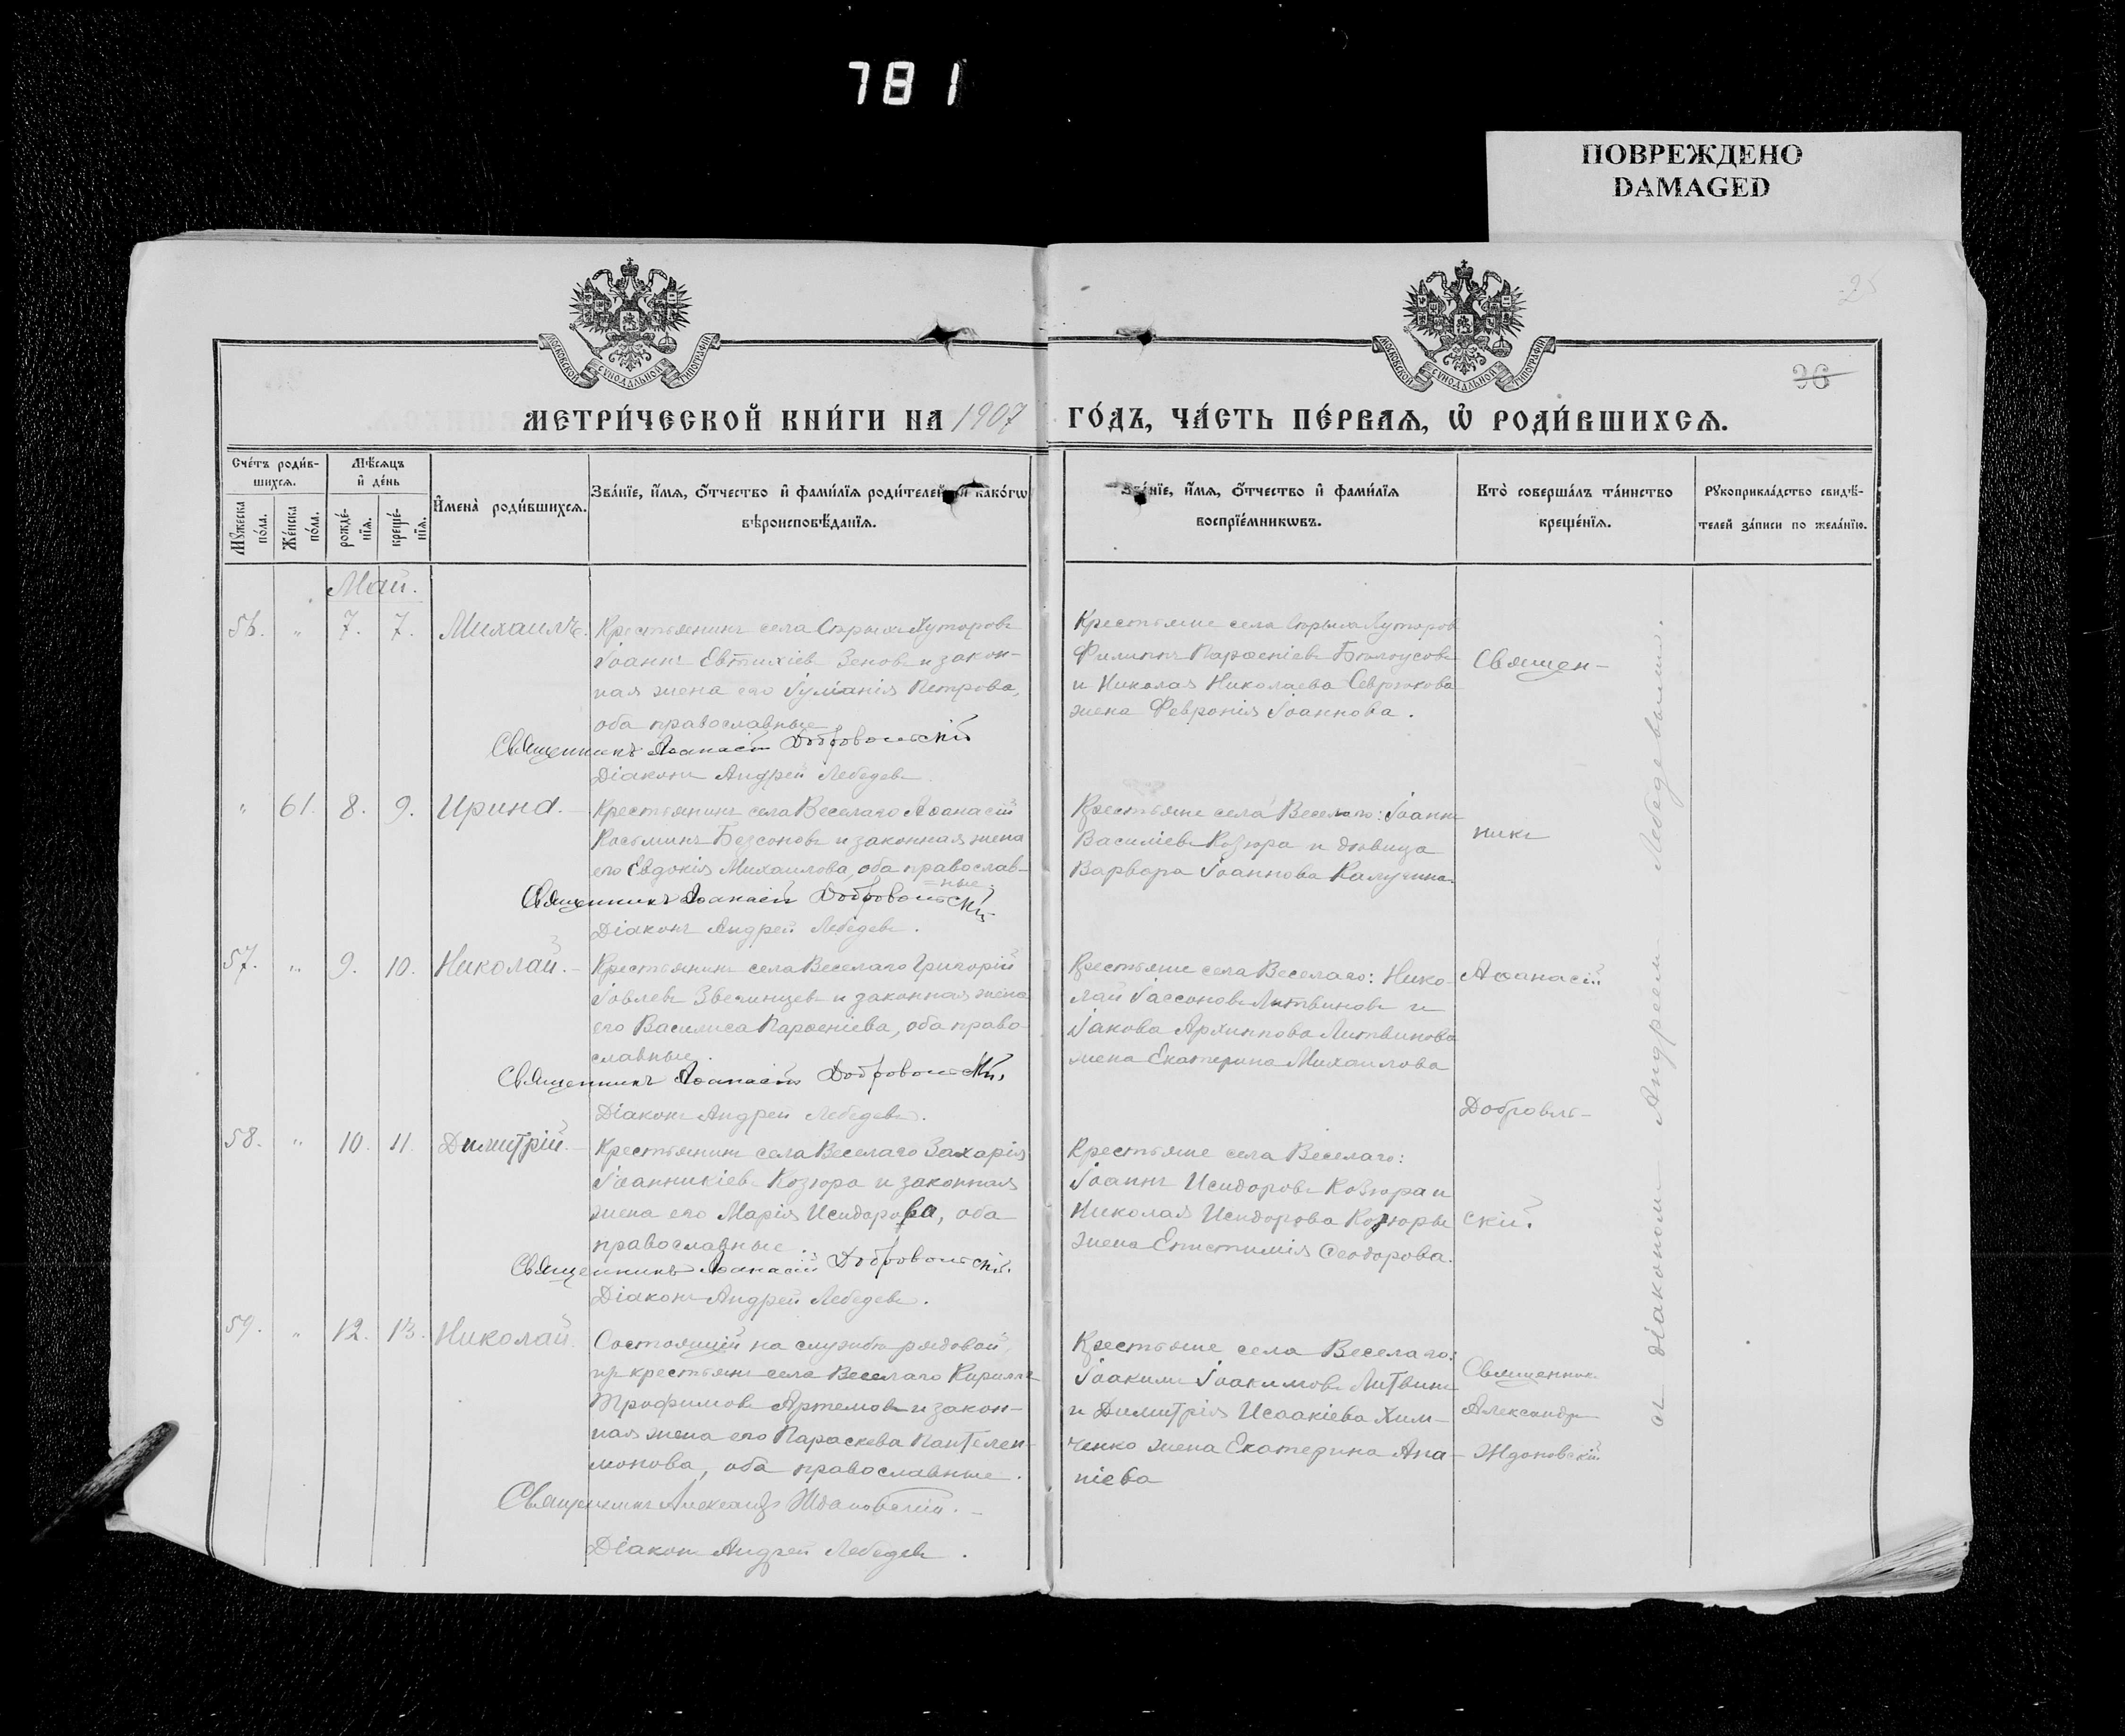 781
ПОВРЕЖДЕНО
DAMAGED
25
36
МОСКОВСКОЙ СѴНОДАЛЬНОЙ ТИПОГРАФІИ
МОСКОВСКОЙ СѴНОДАЛЬНОЙ ТИПОГРАФІИ
МЕТРИ́ЧЕСКОЙ КНИ́ГИ НА 1907 ГО́ДЪ, ЧА́СТЬ ПЕ́РВАѦ, Ѡ҆ РОДИ́ВШИХСѦ.
Сче́тъ роди́в-
шихсѧ.
Мѣ́сѧцъ
и҆ де́нь
Мꙋ́жеска по́ла.
Же́нска по́ла.
рожде́-
нїѧ.
креще́-
нїѧ.
И҆мена̀ роди́вшихсѧ.
Зва́нїе, и҆́мѧ, ѻ҆́тчество и҆ фами́лїѧ роди́телей, и҆ како́гѡ
вѣроисповѣ́данїѧ.
Зва́нїе, и҆́мѧ, ѻ҆́тчество и҆ фами́лїѧ
воспрїе́мникѡвъ.
Кто̀ соверша́лъ та́инство
креще́нїѧ.
Рꙋкоприкла́дство свидѣ́-
телей за́писи по жела́нїю.
Май.
56. " 7. 7. Михаилъ.
Крестьянинъ села Старыхъ Хуторовъ
Іоаннъ Евтихіевъ Зеновъ и закон-
ная жена его Іуліанія Петрова,
оба православные
Священникъ Аѳанасій Добровольскій
Діаконъ Андрей Лебедевъ
Крестьяне села Старыхъ Хуторовъ
Филиппъ Парѳеніевъ Бѣлоусовъ
и Николая Николаева Севрюкова
жена Февронія Іоаннова.
" 61. 8. 9. Ирина.
Крестьянинъ села Веселаго Аѳанасій
Косьминъ Безсоновъ и законная жена
его Евдокія Михаилова, оба православ-
=ные.
Священникъ Аѳанасій Добровольскій
Діаконъ Андрей Лебедевъ.
Крестьяне села Веселаго: Іоаннъ
Василіевъ Козюра и дѣвица
Варвара Іоаннова Калучина.
57. " 9. 10. Николай.
Крестьянинъ села Веселаго Григорій
Іовлевъ Звегинцевъ и законная жена
его Василиса Парѳеніева, оба право-
славные.
Священникъ Аѳанасій Добровольскій
Діаконъ Андрей Лебедевъ.
Крестьяне села Веселаго: Нико-
лай Іассоновъ Литвиновъ и
Іакова Архиппова Литвинова
жена Екатерина Михаилова
58. " 10. 11. Димитрій.
Крестьянинъ села Веселаго Захарія
Іоанникіевъ Козюра и законная
жена его Марія Исидорова, оба
православные.
Священникъ Аѳанасій Добровольскій.
Діаконъ Андрей Лебедевъ.
Крестьяне села Веселаго:
Іоаннъ Исидоровъ Козюра и
Николая Исидорова Козюры
жена Епистимія Ѳеодорова.
59. " 12. 13. Николай.
Состоящій на службѣ рядовой,
изъ крестьянъ села Веселаго Кириллъ
Трофимовъ Артемовъ и закон-
ная жена его Параскева Пантелеи-
монова, оба православные.
Священникъ Александръ Ждановскій.
Діаконъ Андрей Лебедевъ.
Крестьяне села Веселаго:
Іоакимъ Іоакимовъ Литвинъ
и Димитрія Исаакіева Хим-
ченко жена Екатерина Ана-
ніева
Священ-
никъ
Аѳанасій
Доброволь-
скій.
Священникъ
Александръ
Ждановскій
съ діакономъ Андреемъ Лебедевымъ.